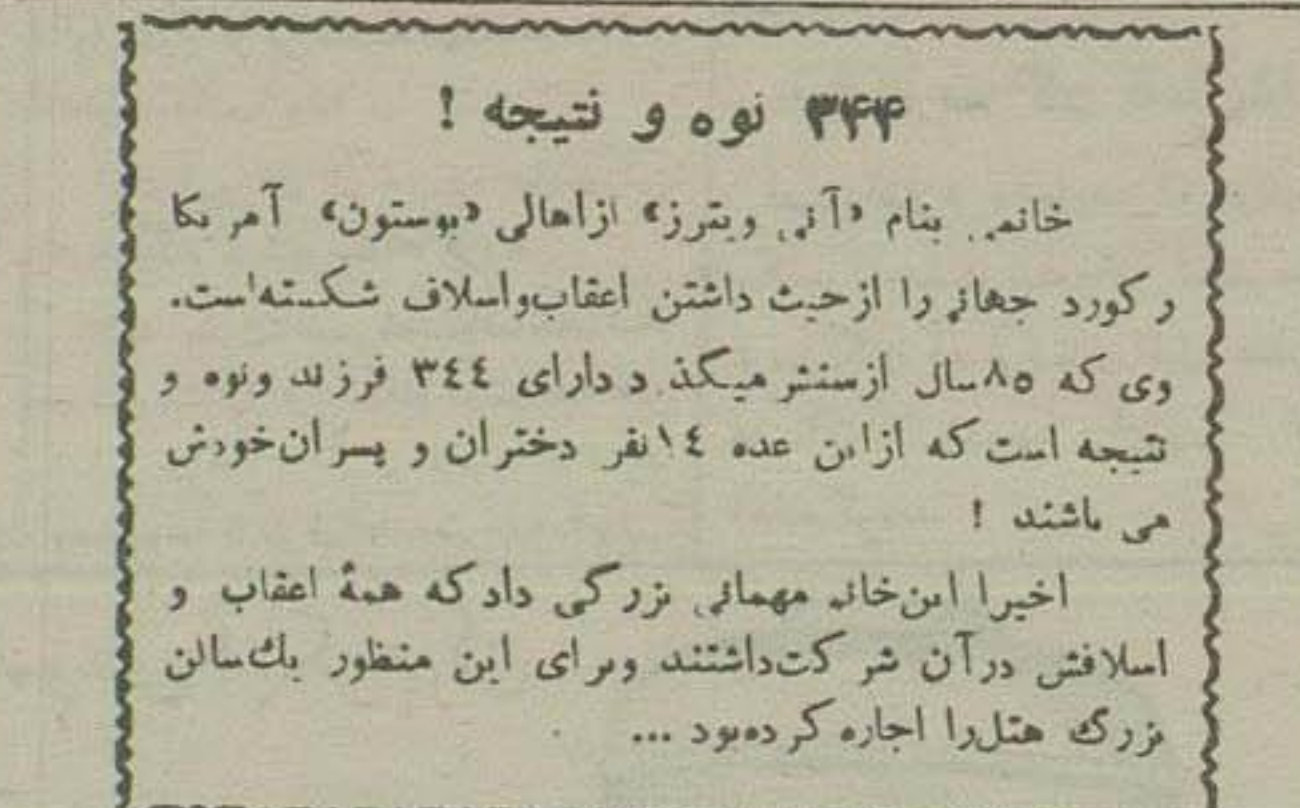 ۳۴۴ نوه و نتیجه !
خانمی بنام «آنی ویترز» از اهالی «بوستون» آمریکا
رکورد جهانی را از حیث داشتن اعقاب و اسلاف شکسته است.
وی که ۸۵ سال از سنش میگذرد دارای ۳۴۴ فرزند و نوه و
نتیجه است که از این عده ۱۴ نفر دختران و پسران خودش
می باشند !
اخیرا این خانم مهمانی بزرگی داد که همهٔ اعقاب و
اسلافش در آن شرکت داشتند و برای این منظور یک سالن
بزرگ هتل را اجاره کرده بود ...